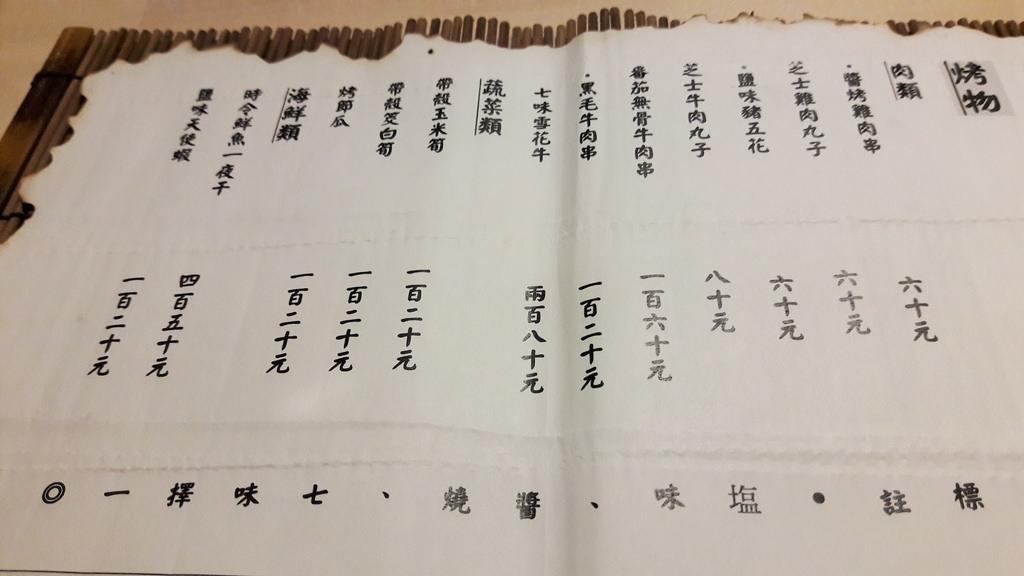 烤物
肉類
醬烤雞肉串
六十元
芝士雞肉丸子
六十元
•鹽味豬五花
六十元
芝士牛肉丸子
八十元
番茄無骨牛肉串
一百六十元
•黑毛牛肉串
一百二十元
七味雪花牛
兩百八十元
蔬菜類
帶殼玉米筍
一百二十元
帶殼筊白筍
一百二十元
烤節瓜
一百二十元
海鮮類
時令鮮魚一夜干
四百五十元
鹽味天使蝦
一百二十元
標註●塩味、醬燒、七味擇一◎